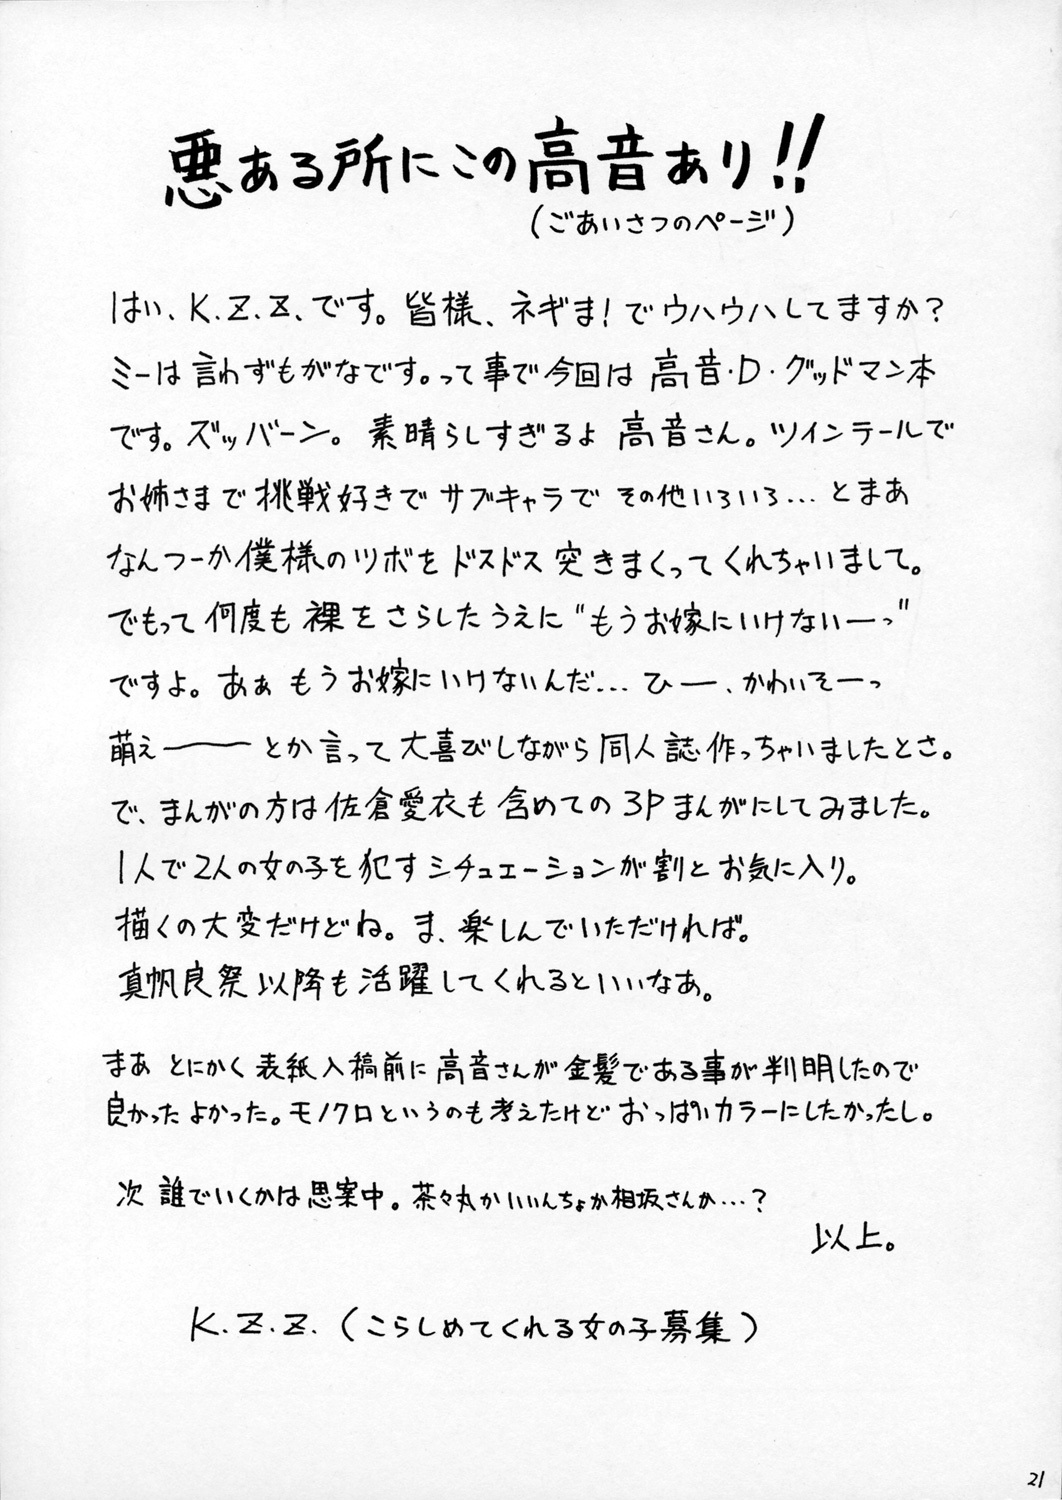 悪ある所にこの高音あり!!
(ごあいさつのページ)
はい、K.Z.Z.です。皆様、ネギま!でウハウハしてますか?
ミーは言わずもがなです。って事で今回は高音・D・グッドマン本
です。ズッバーン。素晴らしすぎるよ高音さん。ツインテールで
お姉さまで挑戦好きでサブキャラでその他いろいろ…とまあ
なんつーか僕様のツボをドスドス突きまくってくれちゃいまして。
でもって何度も裸をさらしたうえに"もうお嫁にいけないーっ"
ですよ。あぁもうお嫁にいけないんだ…ひー、かわいそーっ
萌え――とか言って大喜びしながら同人誌作っちゃいましたとさ。
で、まんがの方は佐倉愛衣も含めての3Pまんがにしてみました。
1人で2人の女の子を犯すシチュエーションが割とお気に入り。
描くの大変だけどね。ま、楽しんでいただければ。
真帆良祭以降も活躍してくれるといいなあ。
まあとにかく表紙入稿前に高音さんが金髪である事が判明したので
良かったよかった。モノクロというのも考えたけどおっぱいカラーにしたかったし。
次誰でいくかは思案中。茶々丸かいいんちょか相坂さんか…?
以上。
K.Z.Z.(こらしめてくれる女の子募集)
21